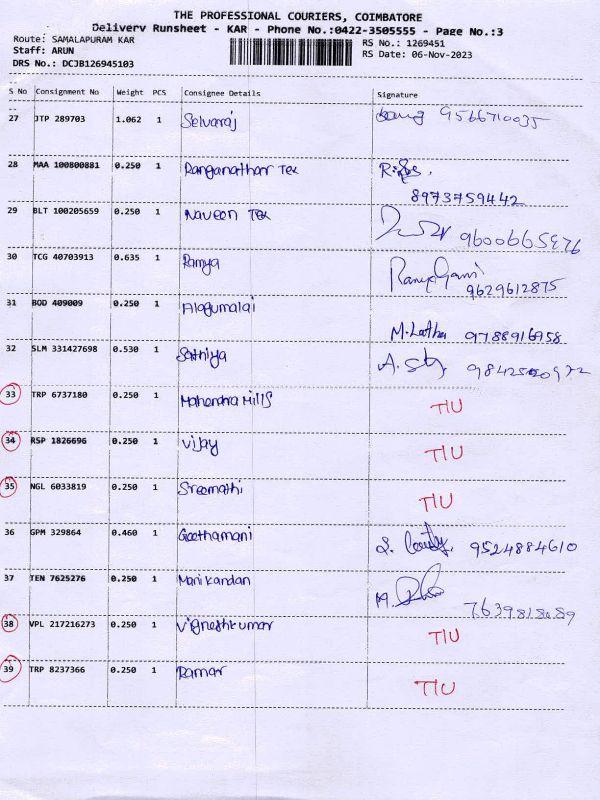 THE PROFESSIONAL COURIERS, COIMBATORE
Delivery Runsheet - KAR - Phone No.:0422-3505555 - Page No.:3
Route: SAMALAPURAM KAR RS No.: 1269451
Staff: ARUN RS Date: 06-Nov-2023
DRS No.: DCJB126945103
S No Consignment No Weight PCS Consignee Details Signature
27 JTP 289703 1.062 1 Selvaraj 9566710035
28 MAA 100800881 0.250 1 Ranganathan Tex
8973759442
29 BLT 100205659 0.250 1 Naveen Tex
30 TCG 40703913 0.635 1 Ramya
9629612875
31 BOD 409009 0.250 1 Alagumalai
M. Latha 9788916958
32 SLM 331427698 0.530 1 Sathiya
33 TRP 6737180 0.250 1 Mahendra Mills TIU
34 RSP 1826696 0.250 1 Vijay TIU
35 NGL 6033819 0.250 1 Sreemathi TIU
36 GPM 329864 0.460 1 Geethamani 9524884610
37 TEN 7625276 0.250 1 Manikandan
38 VPL 217216273 0.250 1 Vigneshkumar TIU
39 TRP 8237366 0.250 1 Ramar TIU